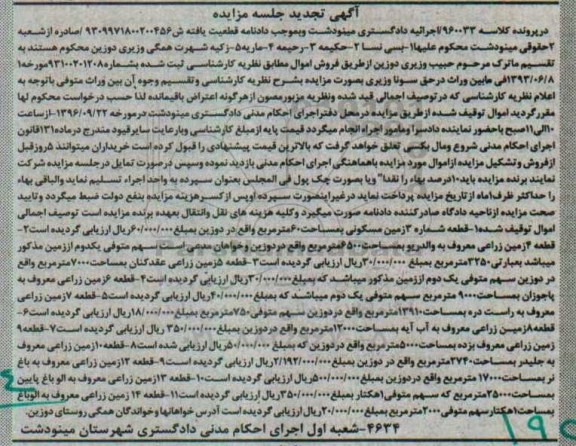 آگهی تجدید جلسه مزایده
درپرونده کلاسه ۹۶۰۰۳۳/اجرائیه دادگستری مینودشت وبموجب دادنامه قطعیت یافته ش۹۳۰۹۹۷۱۸۰۰۲۰۰۴۵۶ /صادره ازشعبه
۲حقوقی مینودشت محکوم علیها۱-بسی نسا ۲-حکیمه ۳-رحیمه ۴-ماریه۵-زکیه شهرت همگی وزیری دوزین محکوم هستند به
تقسیم ماترک مرحوم حبیب وزیری دوزین ازطریق فروش اموال مطابق نظریه کارشناسی ثبت شده بشماره۹۳۱۰۰۲۰۱۲۰۸مورخه۱
۱۳۹۳/۰۶/۸فی مابین وراث درحق سونا وزیری بصورت مزایده بشرح نظریه کارشناسی وتقسیم وجوه آن بین وراث متوفی باتوجه به
اعلام نظریه کارشناسی که درتوصیف اجمالی قید شده ونظریه مزبورمصون ازهرگونه اعتراض باقیمانده لذا حسب درخواست محکوم لها
مقررگردید اموال توقیف شده ازطریق مزایده درمحل دفتراجرای احکام مدنی دادگستری مینودشت درمورخه ۱۳۹۶/۰۹/۲۲-ازساعت
۱۰الی۱۱صبح باحضور نماینده دادسرا ومامور اجراء انجام میگردد قیمت پایه ازمبلغ کارشناسی وبارعایت سایرقیود مندرج درماده۱۳۱قانون
اجرای احکام مدنی شروع ومال بکسی تعلق خواهد گرفت که بالاترین قیمت پیشنهادی را قبول کرده است خریداران میتوانند ۵روزقبل
ازفروش وتشکیل مزایده ازاموال مورد مزایده باهماهنگی اجرای احکام مدنی بازدید نموده وسپس درصورت تمایل درجلسه مزایده شرکت
نمایند برنده مزایده باید۱۰درصد بهاء را نقدا" ویا بصورت چک پول فی المجلس بعنوان سپرده به واحد اجراء تسلیم نماید والباقی بهاء
را حداکثر ظرف۱ماه ازتاریخ مزایده پرداخت نماید درغیراینصورت سپرده اوپس ازکسرهزینه مزایده بنفع دولت ضبط میگردد وتایید
صحت مزایده ازناحیه دادگاه صادرکننده دادنامه صورت میگیرد وکلیه هزینه های نقل وانتقال بعهده برنده مزایده است توصیف اجمالی
اموال توقیف شده۱-قطعه شماره ۳زمین مسکونی بمساحت۶۰۰مترمربع واقع در دوزین بمبلغ۶۰/۰۰۰/۰۰۰ریال ارزیابی گردیده است۲-
قطعه ۴زمین زراعی معروف به والدریو بمساحت۶۵۰۰مترمربع واقع دردوزین سهم متوفی یکدوم اززمین مذکور
میباشد بعبارتی۳۲۵۰مترمربع بمبلغ ۳۰/۰۰۰/۰۰۰ریال ارزیابی گردیده است۳-قطعه ۵زمین زراعی عقدکنان بمساحت۷۰۰۰مترمربع واقع
در دوزین سهم متوفی یک دوم اززمین مذکور میباشد که بمبلغ ۳۰/۰۰۰/۰۰۰ریال ارزیابی گردیده است۴-قطعه ۶زمین زراعی معروف به
پاجوزان بمساحت۹۰۰۰ مترمربع سهم متوفی یک دوم میباشد که بمبلغ۴۰/۰۰۰/۰۰۰ریال ارزیابی گردیده است۵-قطعه ۷زمین زراعی
معروف به راست دره بمساحت۱۳۹۱۰مترمربع واقع دردوزین سهم متوفی۷۵۰مترمربع بمبلغ۱۸/۰۰۰/۰۰۰ریال ارزیابی گردیده است۶-
قطعه۸زمین زراعی معروف به آب آیه بمساحت۱۲۰۰۰مترمربع واقع دردوزین بمبلغ ۳۵۰/۰۰۰/۰۰۰ ریال ارزیابی گردیده است۷-قطعه۹
زمین زراعی معروف بزده بمساحت۵۰۰۰مترمربع واقع دردوزین که بمبلغ ۵۰/۰۰۰/۰۰۰ریال ارزیابی شده است۸-قطعه۱۰زمین زراعی معروف
به جلیدر بمساحت۲۷۴۰مترمربع واقع در دوزین بمبلغ۲/۱۹۲/۰۰۰/۰۰۰ریال ارزیابی گردیده است۹-قطعه ۱۲زمین زراعی معروف به باغ
نر بمساحت۱۷۰۰۰ مترمربع واقع دردوزین بمبلغ۵۰۰/۰۰۰/۰۰۰ریال ارزیابی گردیده است۱۰-قطعه ۱۳زمین زراعی معروف به الو باغ پایین
بمساحت۲۵۰۰۰مترمربع که سهم متوفی۱هکتار بمبلغ۳۵۰/۰۰۰/۰۰۰ریال ارزیابی گردیده است۱۱-قطعه ۱۴ زمین زراعی معروف به الوباغ
بمساحت۱هکتارسهم متوفی۲۰۰۰مترمربع بمبلغ۲۰/۰۰۰/۰۰۰ریال ارزیابی گردیده است آدرس خواهانها وخواندگان همگی روستای دوزین.
۴۶۳۴-شعبه اول اجرای احکام مدنی دادگستری شهرستان مینودشت